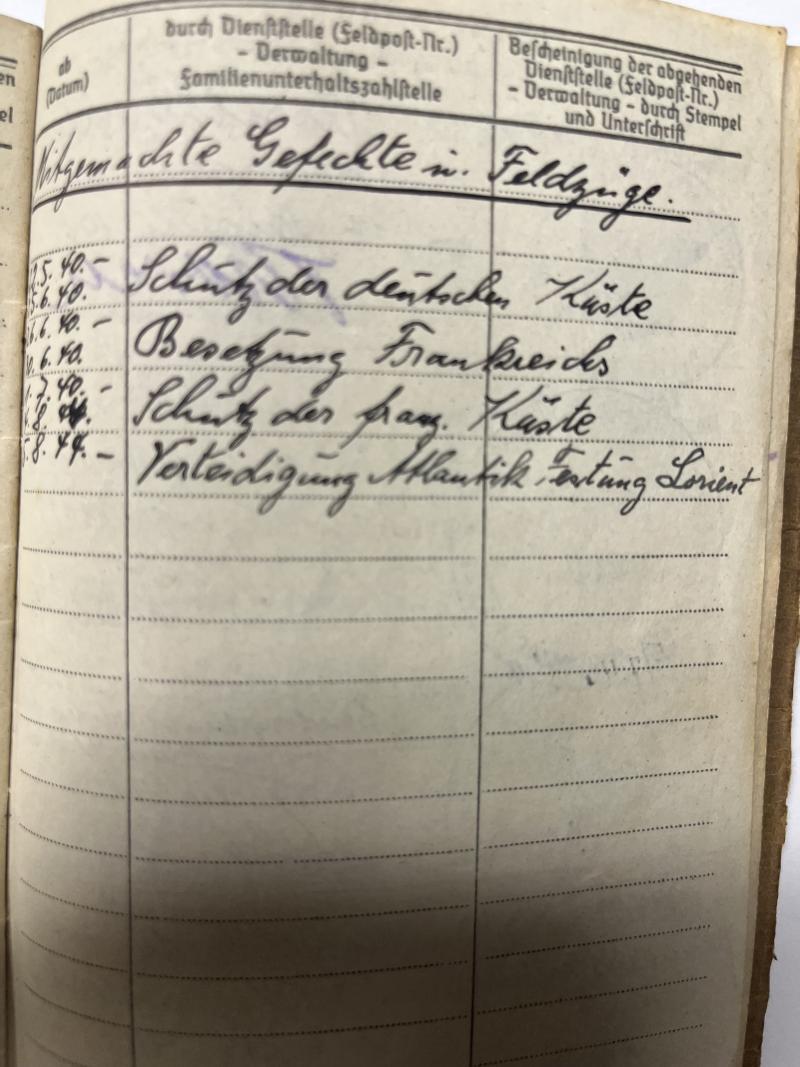 en
el
ab
(Datum)
durch Dienststelle (Feldpost-Nr.)
- Verwaltung -
Familienunterhaltszahlstelle
Bescheinigung der abgehenden
Dienststelle (Feldpost-Nr.)
- Verwaltung - durch Stempel
und Unterschrift
Mitgemachte Gefechte u. Feldzüge.
.5. 40. -
5.6. 40. Schutz der deutschen Küste
6.6. 40. -
.6. 40. Besetzung Frankreichs
.7. 40. -
.8. 44. Schutz der franz. Küste
.8. 44. - Verteidigung Atlantik Festung Lorient